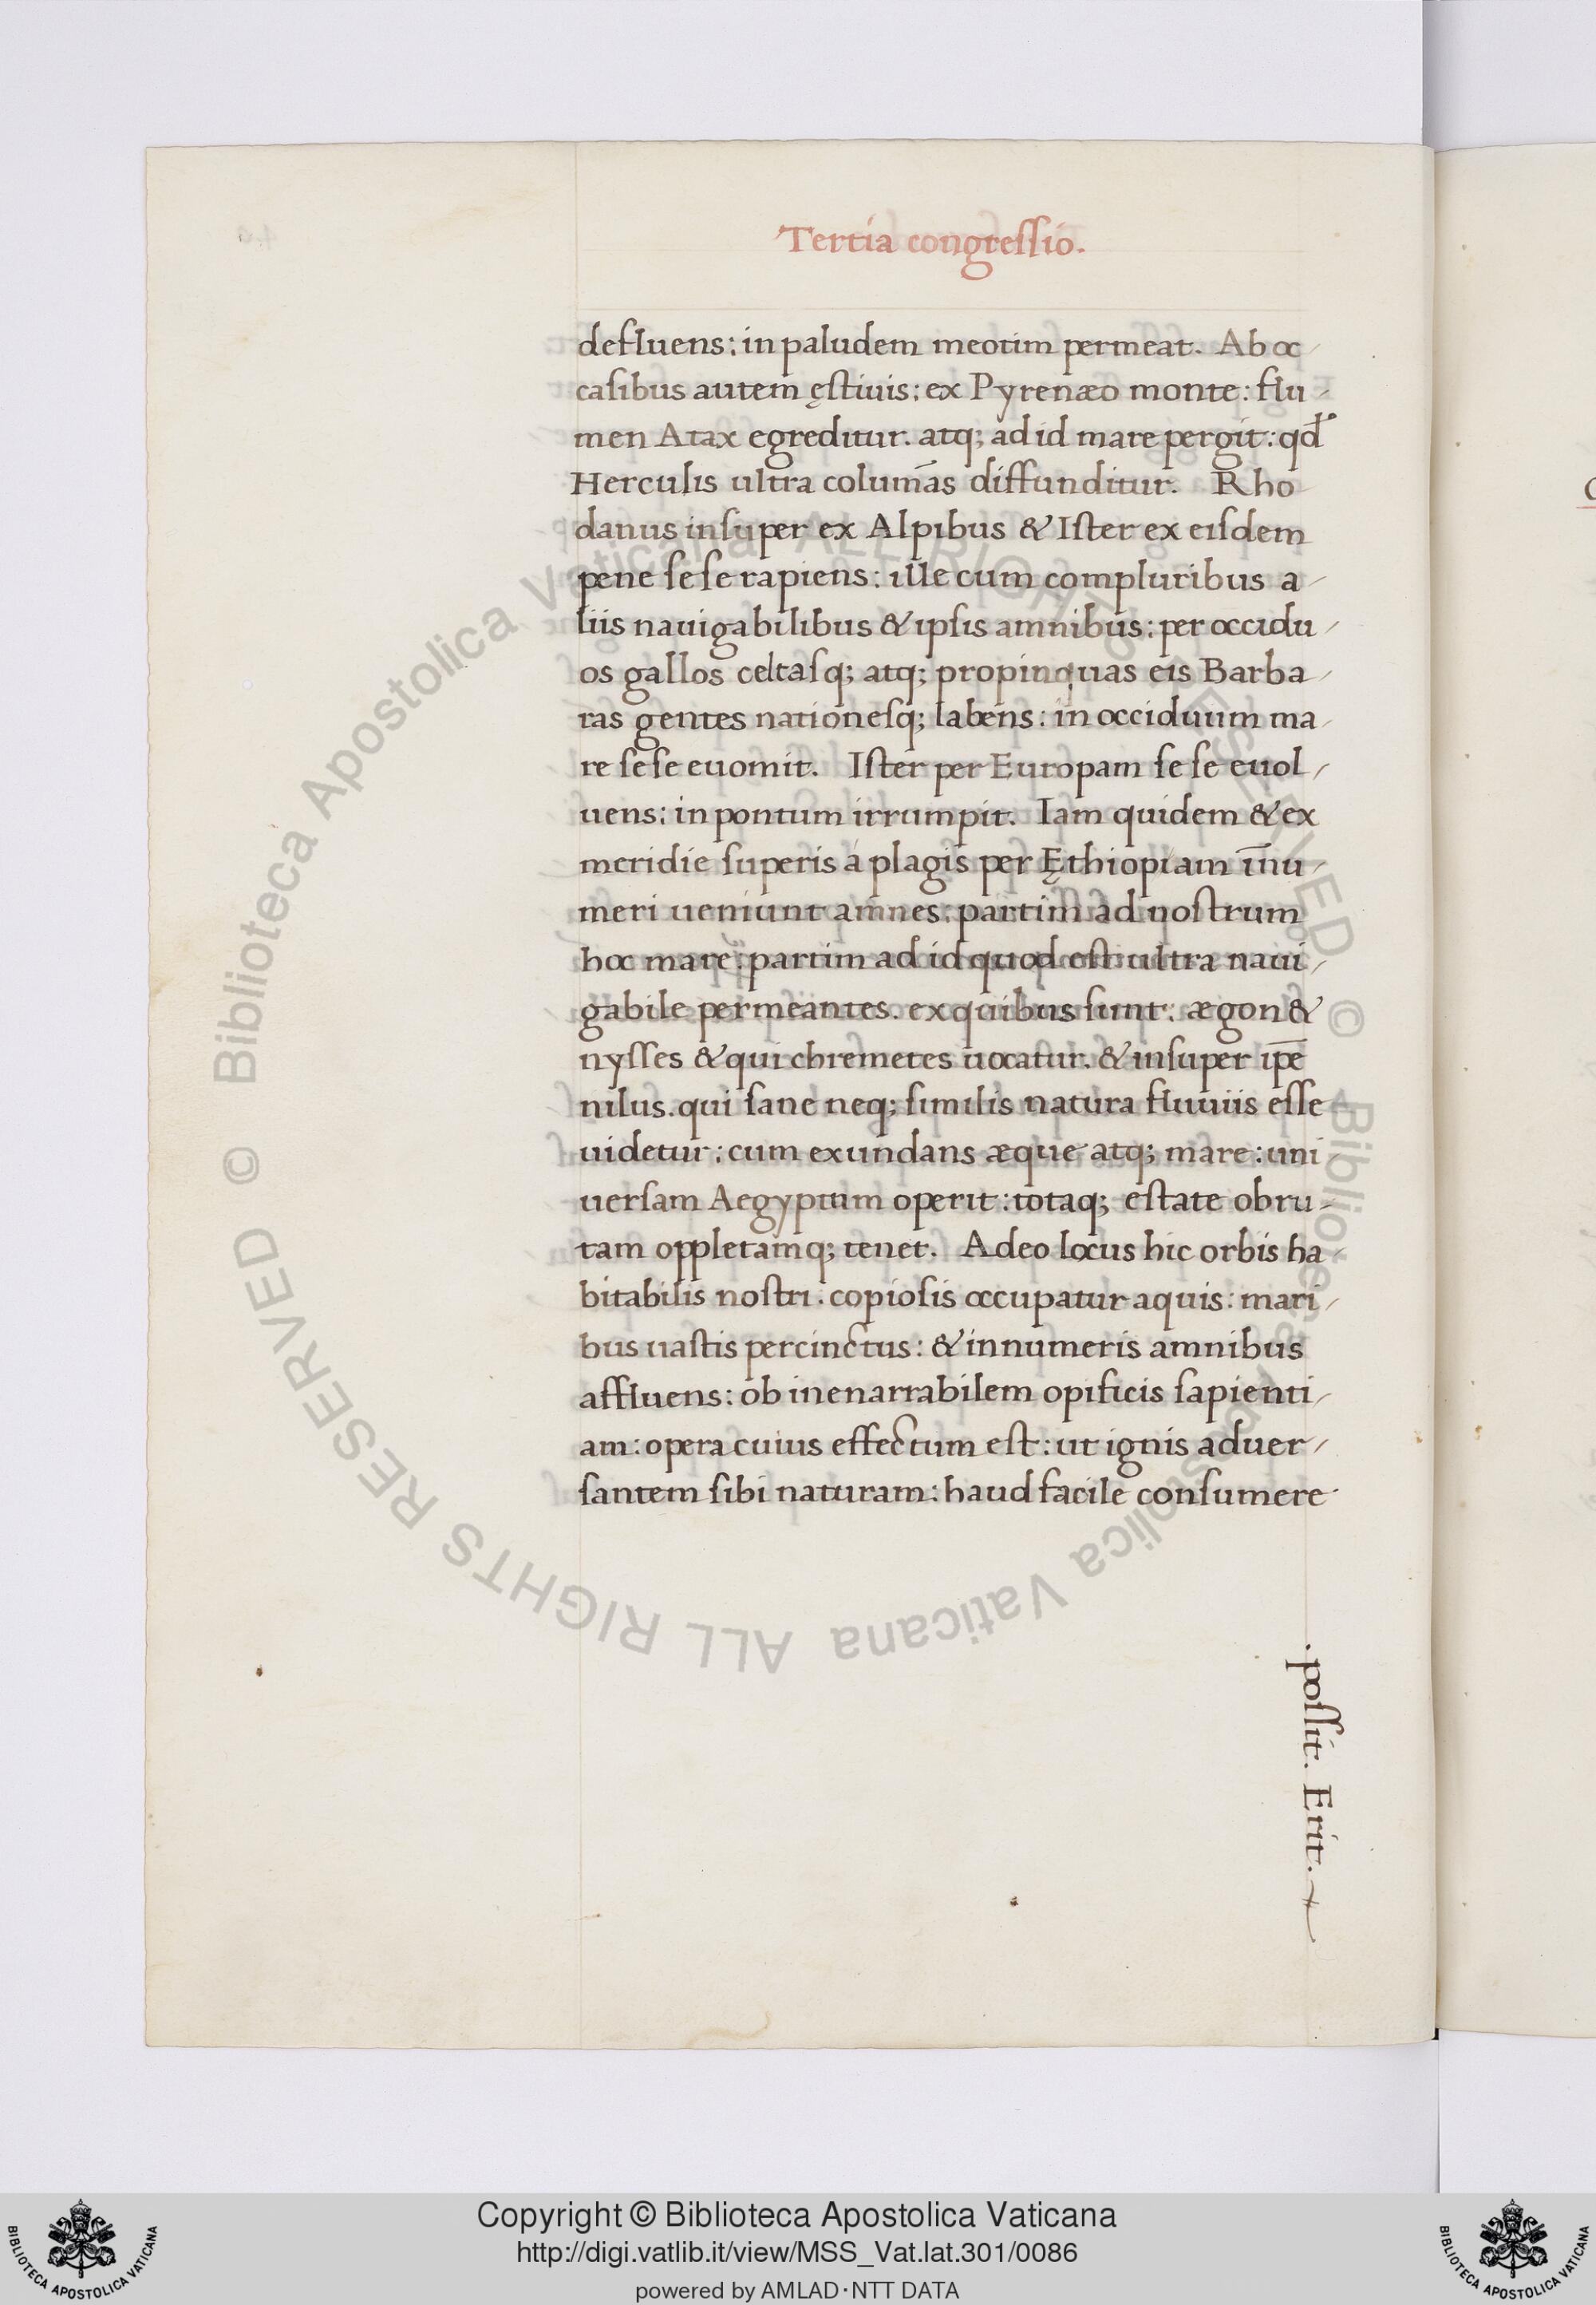 Tertia congressio.
defluens: in paludem meotim permeat. Ab oc
casibus autem ęstiuis: ex Pyrenæo monte: flu-
men Atax egreditur. atq; ad id mare pergit: qd̄
Herculis ultra colum̄as diffunditur. Rho
danus insuper ex Alpibus & Ister ex eisdem
pene sese rapiens: ille cum compluribus a-
liis nauigabilibus & ipsis amnibus: per occidu-
os gallos celtasq; atq; propinquas eis Barba-
ras gentes nationesq; labens: in occiduum ma-
re sese euomit. Ister per Europam sese euol-
uens: in pontum irrumpit. Iam quidem & ex
meridie superis á plagis per Ęthiopiam in̄u-
meri ueniunt amnes: partim ad nostrum
hoc mare: partim ad id quod est ultra naui-
gabile permeantes. ex quibus sunt: ægon &
nysses & qui chremetes uocatur. & insuper ip̄e
nilus. qui sane neq; similis natura fluuiis esse
uidetur: cum exundans æque atq; mare: uni-
uersam Aegyptum operit: totaq; estate obru-
tam oppletamq; tenet. Adeo locus hic orbis ha-
bitabilis nostri: copiosis occupatur aquis: mari-
bus uastis percinctus: & innumeris amnibus
affluens: ob inenarrabilem opificis sapienti-
am: opera cuius effectum est: ut ignis aduer-
santem sibi naturam: haud facile consumere
. possit. Erit.
© Biblioteca Apostolica Vaticana ALL RIGHTS RESERVED © Biblioteca Apostolica Vaticana ALL RIGHTS RESERVED
Copyright © Biblioteca Apostolica Vaticana
http://digi.vatlib.it/view/MSS_Vat.lat.301/0086
powered by AMLAD·NTT DATA
BIBLIOTECA APOSTOLICA VATICANA
BIBLIOTECA APOSTOLICA VATICANA